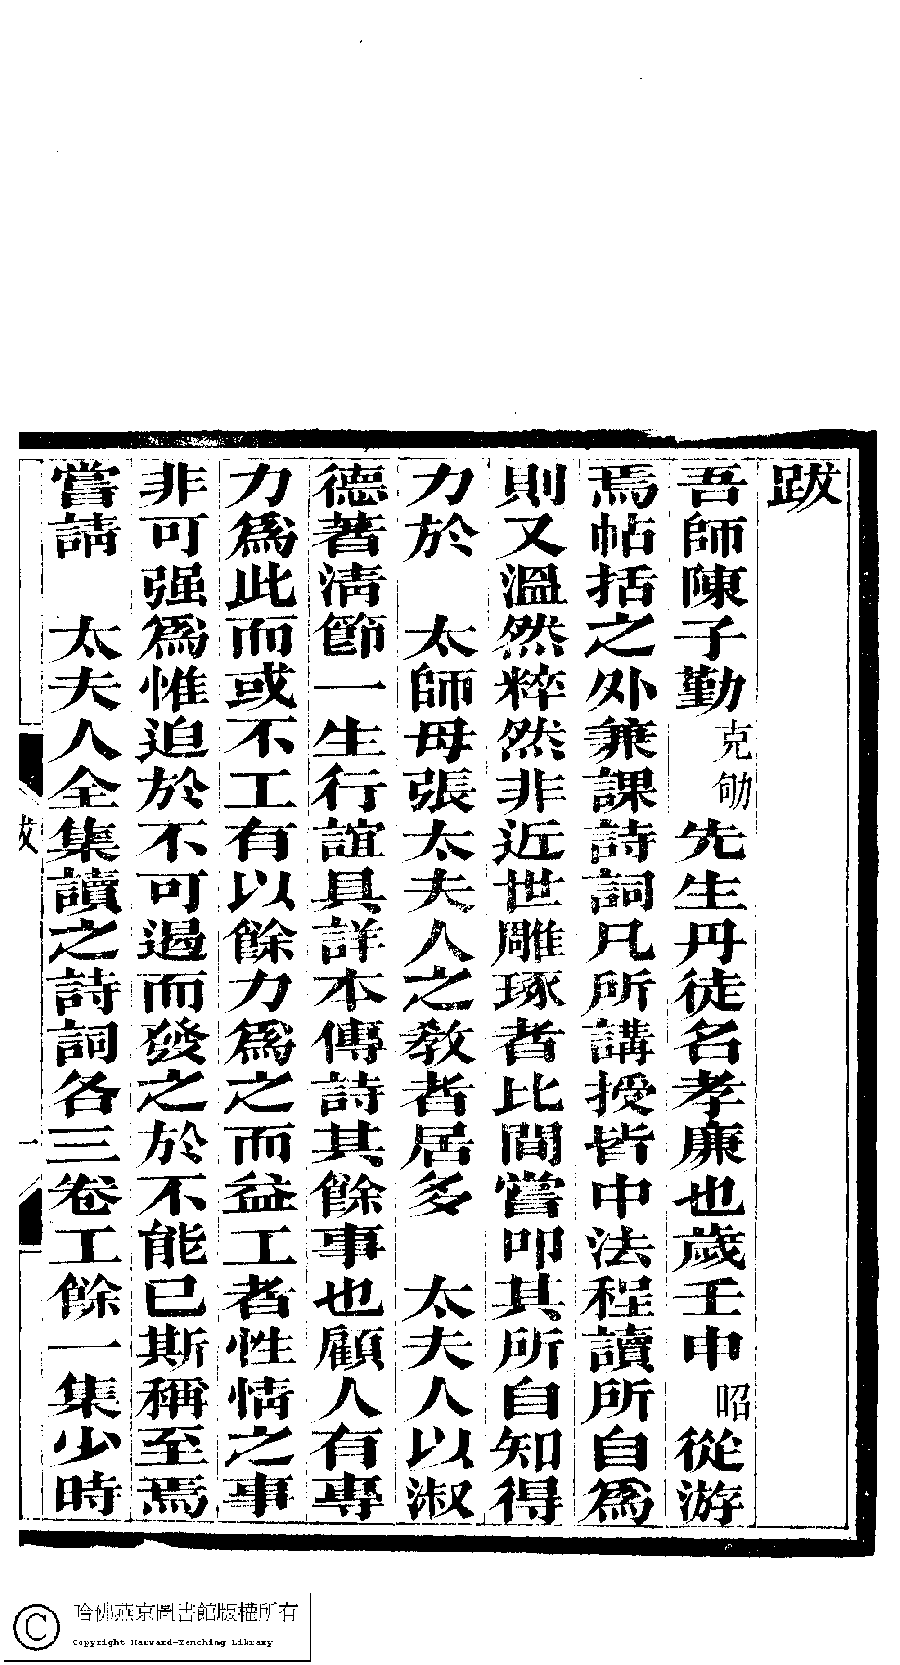 跋
吾師陳子勤克劬先生丹徒名孝廉也歲壬申昭從游
焉帖括之外兼課詩詞凡所講授皆中法程讀所自為
則又溫然粹然非近世雕琢者比間嘗叩其所自知得
力於　太師母張太夫人之教者居多　太夫人以淑
德著清節一生行誼具詳本傳詩其餘事也顧人有專
力為此而或不工有以餘力為之而益工者性情之事
非可强為惟迫於不可遏而發之於不能已斯稱至焉
嘗請　太夫人全集讀之詩詞各三卷工餘一集少時
跋
一
哈佛燕京圖書館版權所有
Copyright Harvard-Yenching Library